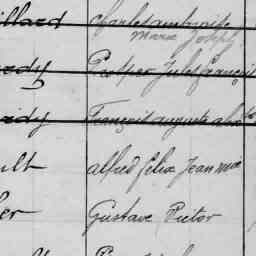 illard Charles Ambroise
Marie Joseph
ardy Prosper Jules François
ardy François Auguste
ult alfred Félix Jean Marie
ler Gustave Victor